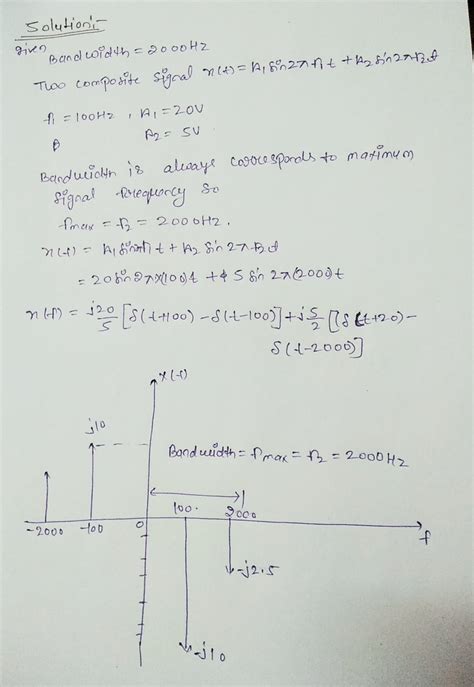 Solution:-
given Bandwidth = 2000Hz
Two composite signal x(t) = A₁ sin2πf₁t + A₂ sin2πf₂t
f₁ = 100Hz , A₁ = 20V
A₂ = 5V
Bandwidth is always corresponds to maximum
signal frequency so
fmax = f₂ = 2000Hz.
x(t) = A₁ sin2πf₁ t + A₂ sin 2πf₂t
= 20 sin 2π×(100)t + 5 sin 2π(2000)t
x(f) = j20/5 [δ(f+100) - δ(f-100)] + j5/2 [δ(f+20) -
δ(f-2000)]
x(f)
j10
Bandwidth = fmax = f₂ = 2000Hz
-2000 -100 0 100. 2000 f
-j2.5
-j10